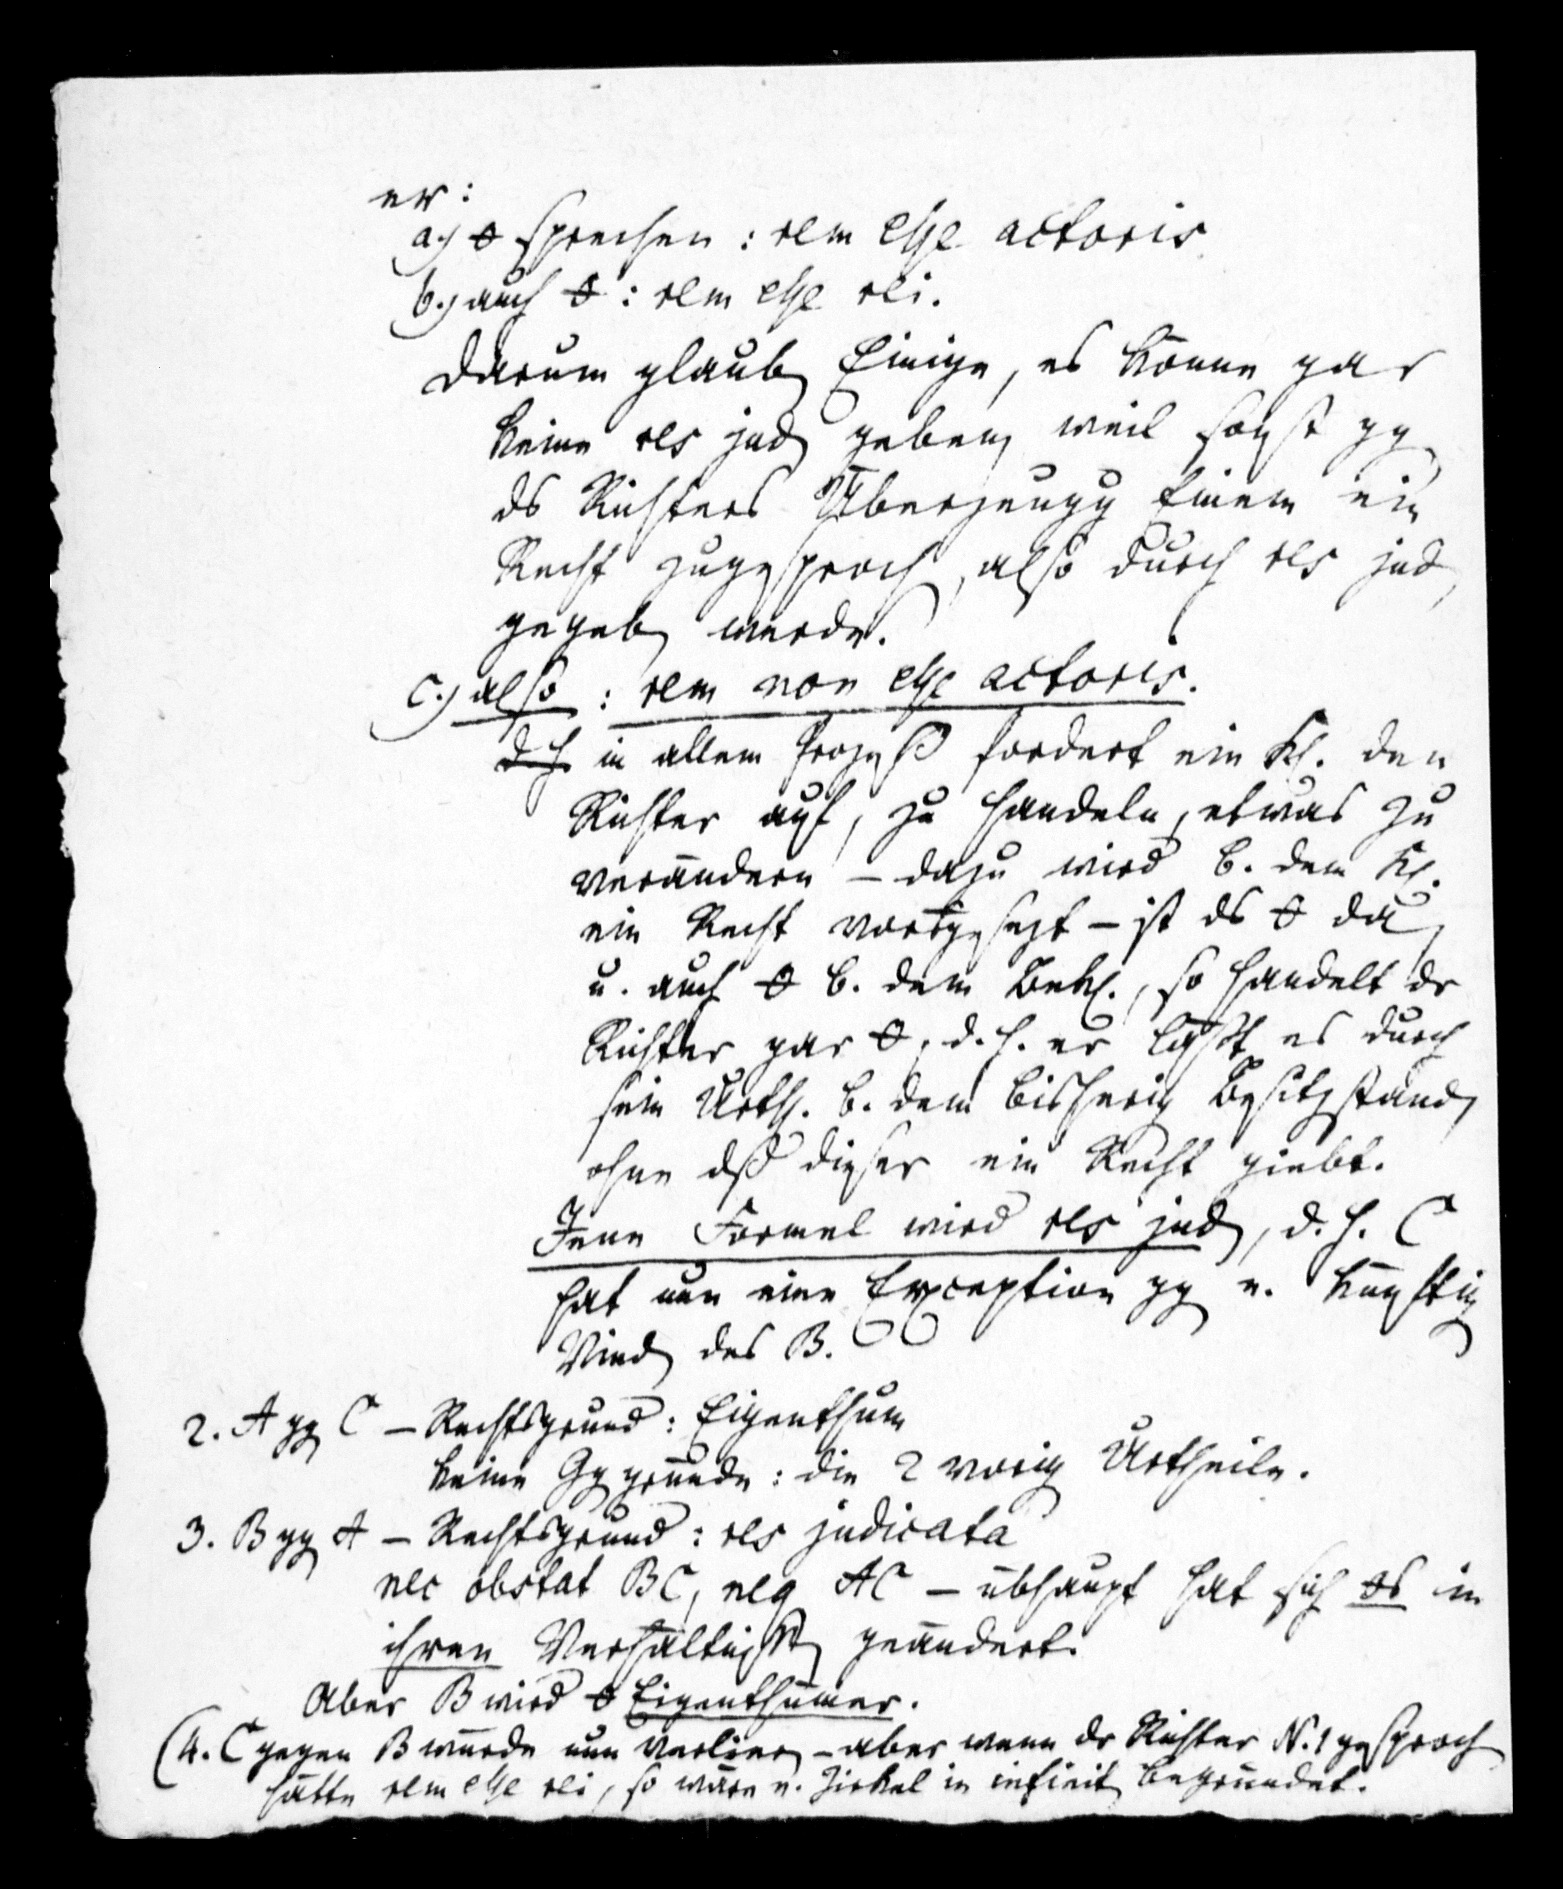 er:
a.) θ sprechen: rem esse actoris.
b.) auch θ: rem esse rei.
Darum glaub Einige, es könne gar
keine res jud geben, weil sonst gg
ds Richters Überzeugg Einem ein
Recht zugesproch, also durch res jud
gegeb werde.
c.) also: rem non esse actoris.
d. h. in allem Prozeß fordert ein Kl. den
Richter auf, zu handeln, etwas zu
verändern – dazu wird b. dem Kl.
ein Recht vorausgesezt – ist ds θ da,
u. auch θ b. dem Bekl., so handelt dr
Richter gar θ, d. h. er läßt es durch
sein Urth. b. dem bisherig Besitzstand,
ohne dß dieser ein Recht giebt.
Jene Formel wird res jud, d. h. C
hat nun eine Exception gg e. künftig
Vind des B.
2. A gg C – Rechtsgrund: Eigenthum
keine Gggründe: die 2 vorig Urtheile.
3. B gg A – Rechtsgrund: res judicata
nec obstat BC, neq AC – übhaupt hat sich θs in
ihren Verhältniss geändert.
Aber B wird θ Eigenthümer.
(4. C gegen B würde nun verlier – aber wenn dr Richter N. 1 gesproch
hätte rem esse rei, so wäre e. Zirkel in infinit begründet.